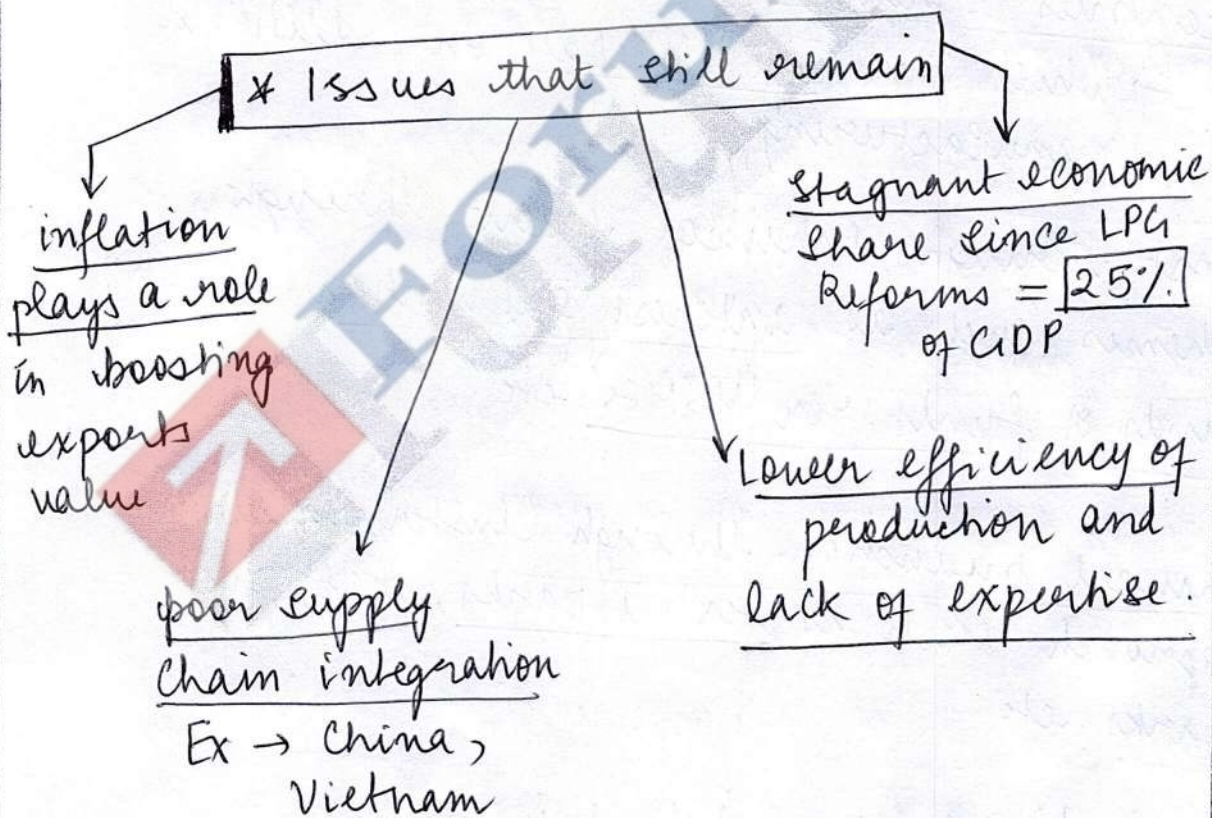 * Issues that still remain
inflation
plays a role
in boosting
exports
value
poor supply
chain integration
Ex → China,
Vietnam
Lower efficiency of
production and
lack of expertise
Stagnant economic
share since LPG
Reforms = 25%
of GDP
Forum